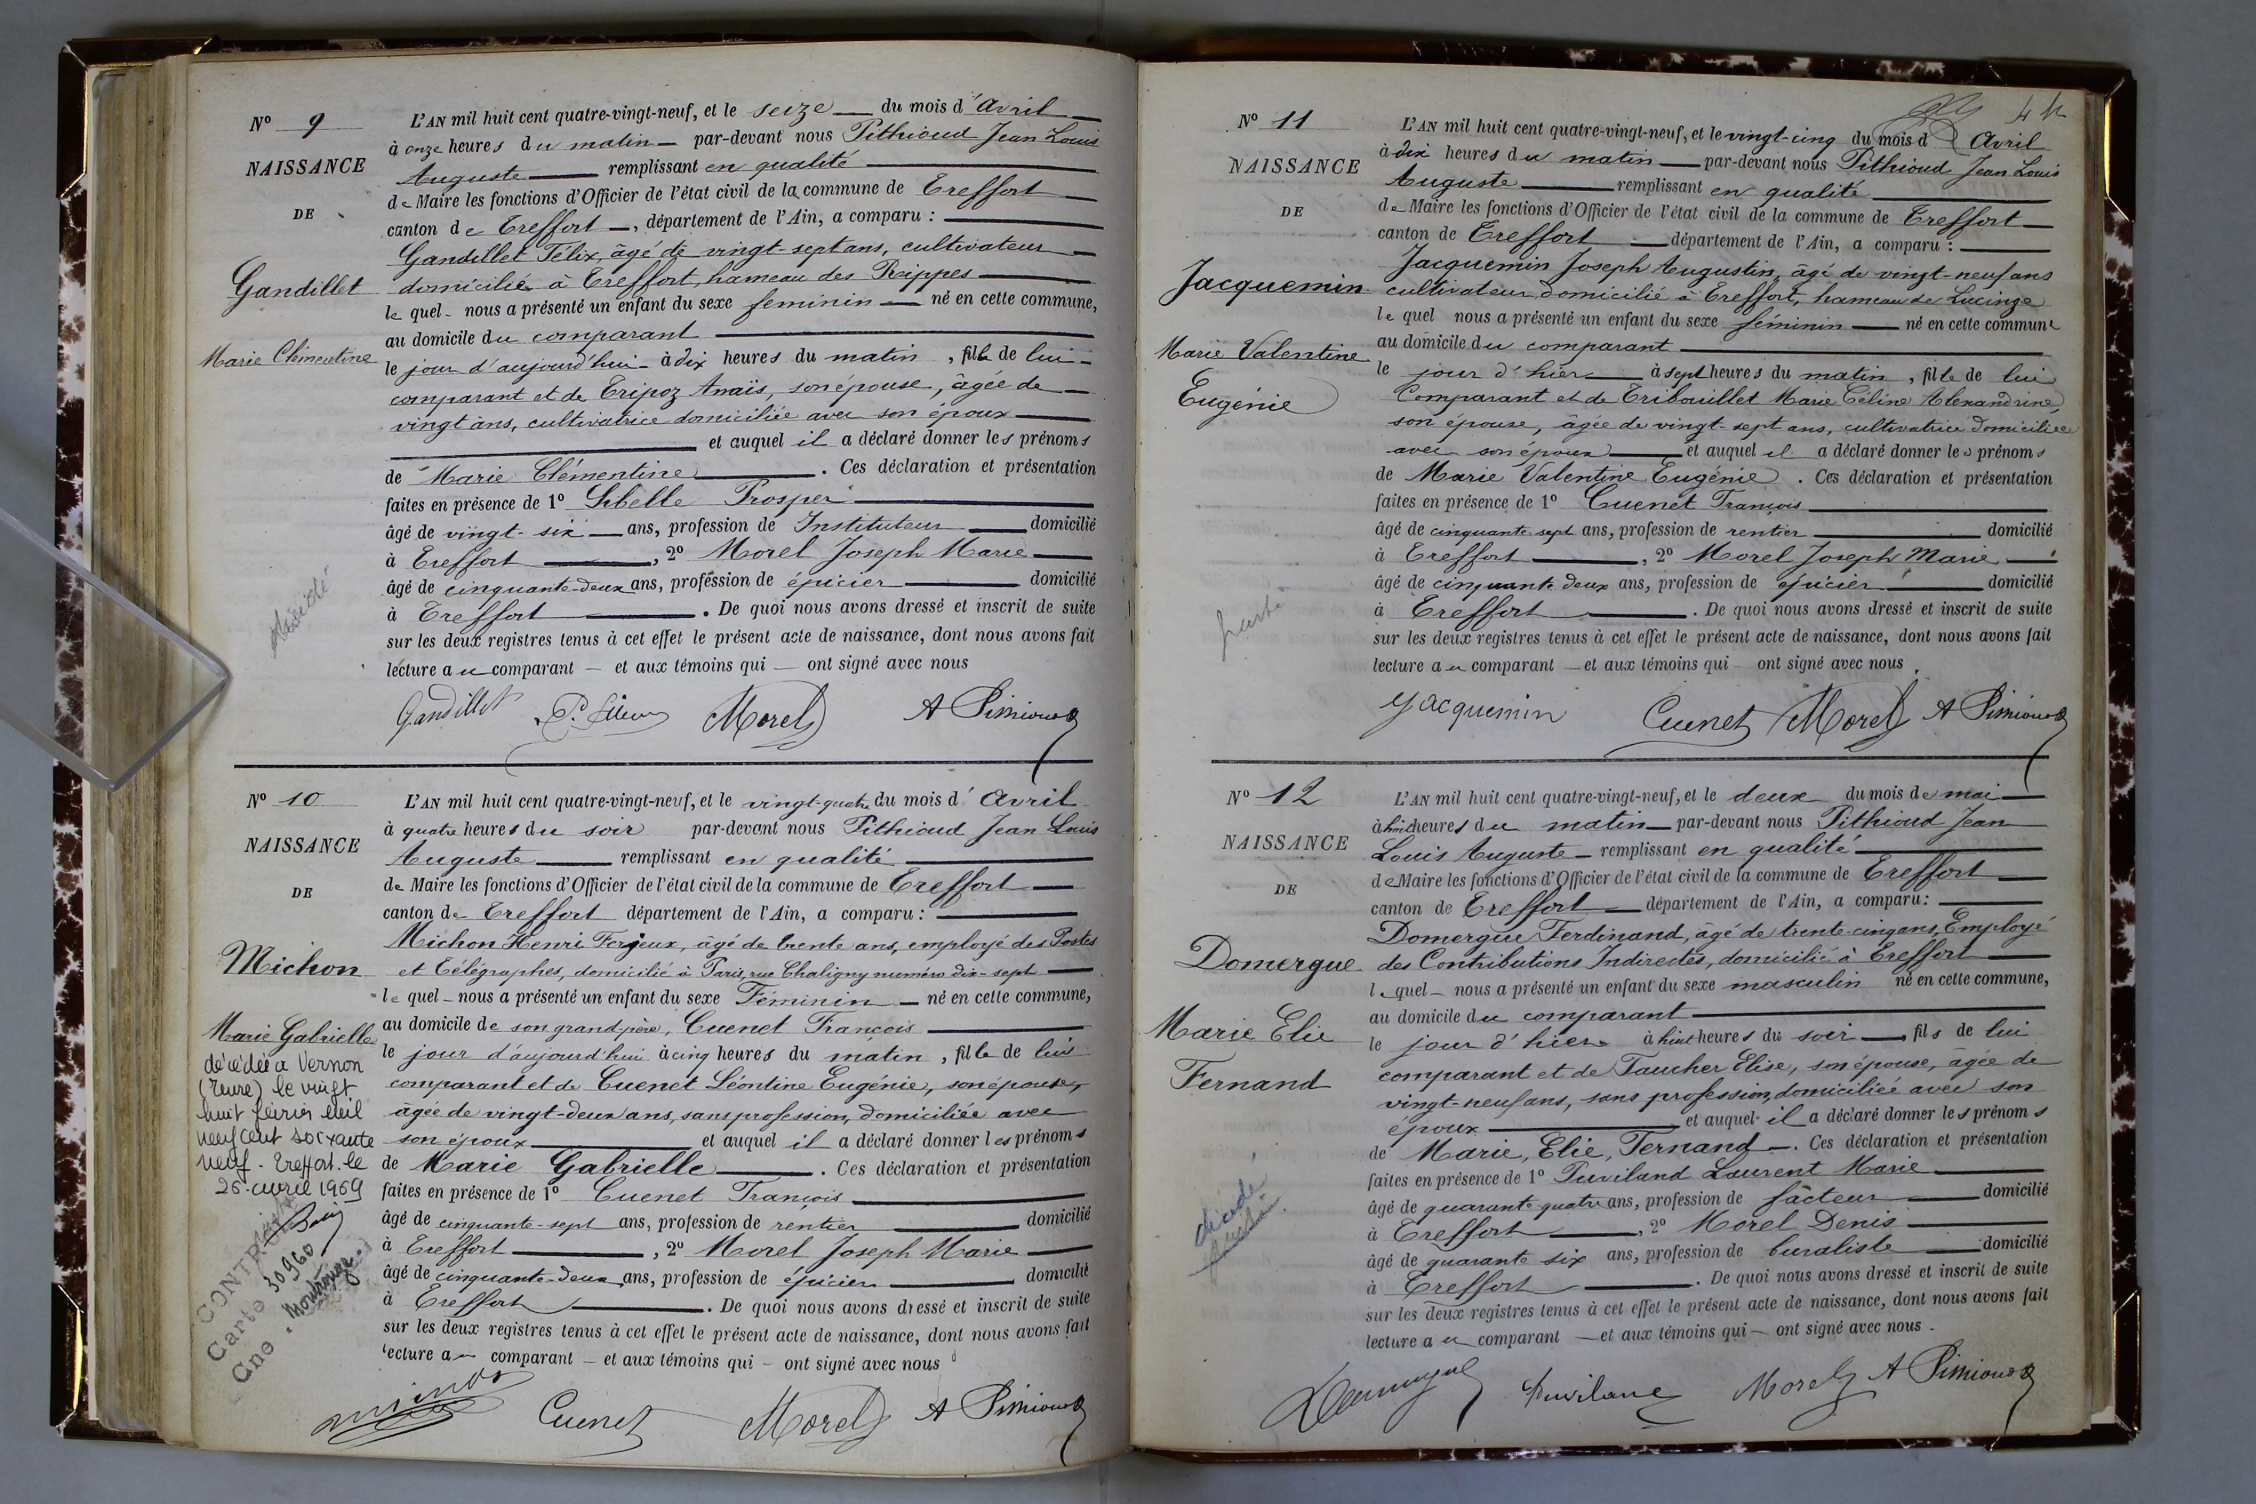 Nº 9
NAISSANCE
DE
Gandillet
Marie Clémentine
décédé
L'AN mil huit cent quatre-vingt-neuf, et le seize du mois d'Avril
à onze heures du matin par-devant nous Pithioud Jean Louis
Auguste remplissant en qualité
de Maire les fonctions d'Officier de l'état civil de la commune de Treffort
canton de Treffort, département de l'Ain, a comparu :
Gandillet Félix, âgé de vingt-sept ans, cultivateur
domicilié à Treffort, hameau des Rippes
lequel nous a présenté un enfant du sexe féminin né en cette commune,
au domicile du comparant
le jour d'aujourd'hui à dix heures du matin, fille de lui
comparant et de Tripoz Anaïs, son épouse, âgée de
vingt ans, cultivatrice domiciliée avec son époux
et auquel il a déclaré donner les prénoms
de Marie Clémentine. Ces déclaration et présentation
faites en présence de 1º Sibelle Prosper
âgé de vingt-six ans, profession de Instituteur domicilié
à Treffort, 2º Morel Joseph Marie
âgé de cinquante-deux ans, profession de épicier domicilié
à Treffort. De quoi nous avons dressé et inscrit de suite
sur les deux registres tenus à cet effet le présent acte de naissance, dont nous avons fait
lecture au comparant et aux témoins qui ont signé avec nous
Gandillet Morel
Nº 10
NAISSANCE
DE
Michon
Marie Gabrielle
décédée à Vernon
(Eure) le vingt
huit février mil
neuf cent soixante
neuf. Treffort le
25 avril 1969
CONTRÔLE
Carte 30960
Cne. Montrouge
L'AN mil huit cent quatre-vingt-neuf, et le vingt-quatre du mois d'Avril
à quatre heures du soir par-devant nous Pithioud Jean Louis
Auguste remplissant en qualité
de Maire les fonctions d'Officier de l'état civil de la commune de Treffort
canton de Treffort département de l'Ain, a comparu :
Michon Henri Ferjeux, âgé de trente ans, employé des Postes
et Télégraphes, domicilié à Paris, rue Chaligny numéro dix-sept
lequel nous a présenté un enfant du sexe Féminin né en cette commune,
au domicile de son grand-père, Cuenet François
le jour d'aujourd'hui à cinq heures du matin, fille de lui
comparant et de Cuenet Léontine Eugénie, son épouse,
âgée de vingt-deux ans, sans profession, domiciliée avec
son époux et auquel il a déclaré donner les prénoms
de Marie Gabrielle. Ces déclaration et présentation
faites en présence de 1º Cuenet François
âgé de cinquante-sept ans, profession de rentier domicilié
à Treffort, 2º Morel Joseph Marie
âgé de cinquante-deux ans, profession de épicier domicilié
à Treffort. De quoi nous avons dressé et inscrit de suite
sur les deux registres tenus à cet effet le présent acte de naissance, dont nous avons fait
lecture au comparant et aux témoins qui ont signé avec nous
Cuenet Morel
Nº 11
NAISSANCE
DE
Jacquemin
Marie Valentine
Eugénie
L'AN mil huit cent quatre-vingt-neuf, et le vingt-cinq du mois d'Avril
à dix heures du matin par-devant nous Pithioud Jean Louis
Auguste remplissant en qualité
de Maire les fonctions d'Officier de l'état civil de la commune de Treffort
canton de Treffort département de l'Ain, a comparu :
Jacquemin Joseph Augustin, âgé de vingt-neuf ans
cultivateur, domicilié à Treffort, hameau de Lucinge
lequel nous a présenté un enfant du sexe féminin né en cette commune
au domicile du comparant
le jour d'hier à sept heures du matin, fille de lui
Comparant et de Tribouillet Marie Céline Alexandrine,
son épouse, âgée de vingt-sept ans, cultivatrice domiciliée
avec son époux et auquel il a déclaré donner les prénoms
de Marie Valentine Eugénie. Ces déclaration et présentation
faites en présence de 1º Cuenet François
âgé de cinquante sept ans, profession de rentier domicilié
à Treffort, 2º Morel Joseph Marie
âgé de cinquante deux ans, profession de épicier domicilié
à Treffort. De quoi nous avons dressé et inscrit de suite
sur les deux registres tenus à cet effet le présent acte de naissance, dont nous avons fait
lecture au comparant et aux témoins qui ont signé avec nous.
Jacquemin Cuenet Morel
Nº 12
NAISSANCE
DE
Domergue
Marie Elie
Fernand
décédé
L'AN mil huit cent quatre-vingt-neuf, et le deux du mois de mai
à huit heures du matin par-devant nous Pithioud Jean
Louis Auguste remplissant en qualité
de Maire les fonctions d'Officier de l'état civil de la commune de Treffort
canton de Treffort département de l'Ain, a comparu :
Domergue Ferdinand, âgé de trente-cinq ans, Employé
des Contributions Indirectes, domicilié à Treffort
lequel nous a présenté un enfant du sexe masculin né en cette commune,
au domicile du comparant
le jour d'hier à huit heures du soir fils de lui
comparant et de Faucher Elise, son épouse, âgée de
vingt-neuf ans, sans profession, domiciliée avec son
époux et auquel il a déclaré donner les prénoms
de Marie, Elie, Fernand. Ces déclaration et présentation
faites en présence de 1º Puviland Laurent Marie
âgé de quarante quatre ans, profession de facteur domicilié
à Treffort, 2º Morel Denis
âgé de quarante six ans, profession de buraliste domicilié
à Treffort. De quoi nous avons dressé et inscrit de suite
sur les deux registres tenus à cet effet le présent acte de naissance, dont nous avons fait
lecture au comparant et aux témoins qui ont signé avec nous.
Domergue Puviland Morel